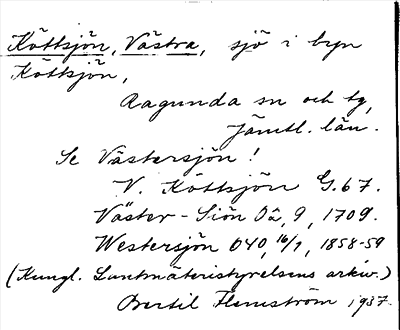 Köttsjön, Västra, sjö i byn
Köttsjön,
Ragunda sn och tg,
Jämtl. län.
Se Västersjön!
V. Köttsjön G.67.
Väster-Siön Oä, 9, 1709.
Westersjön O40, 16/1, 1858-59
(Kungl. Lantmäteristyrelsens arkiv.)
Bertil Flemström 1937.